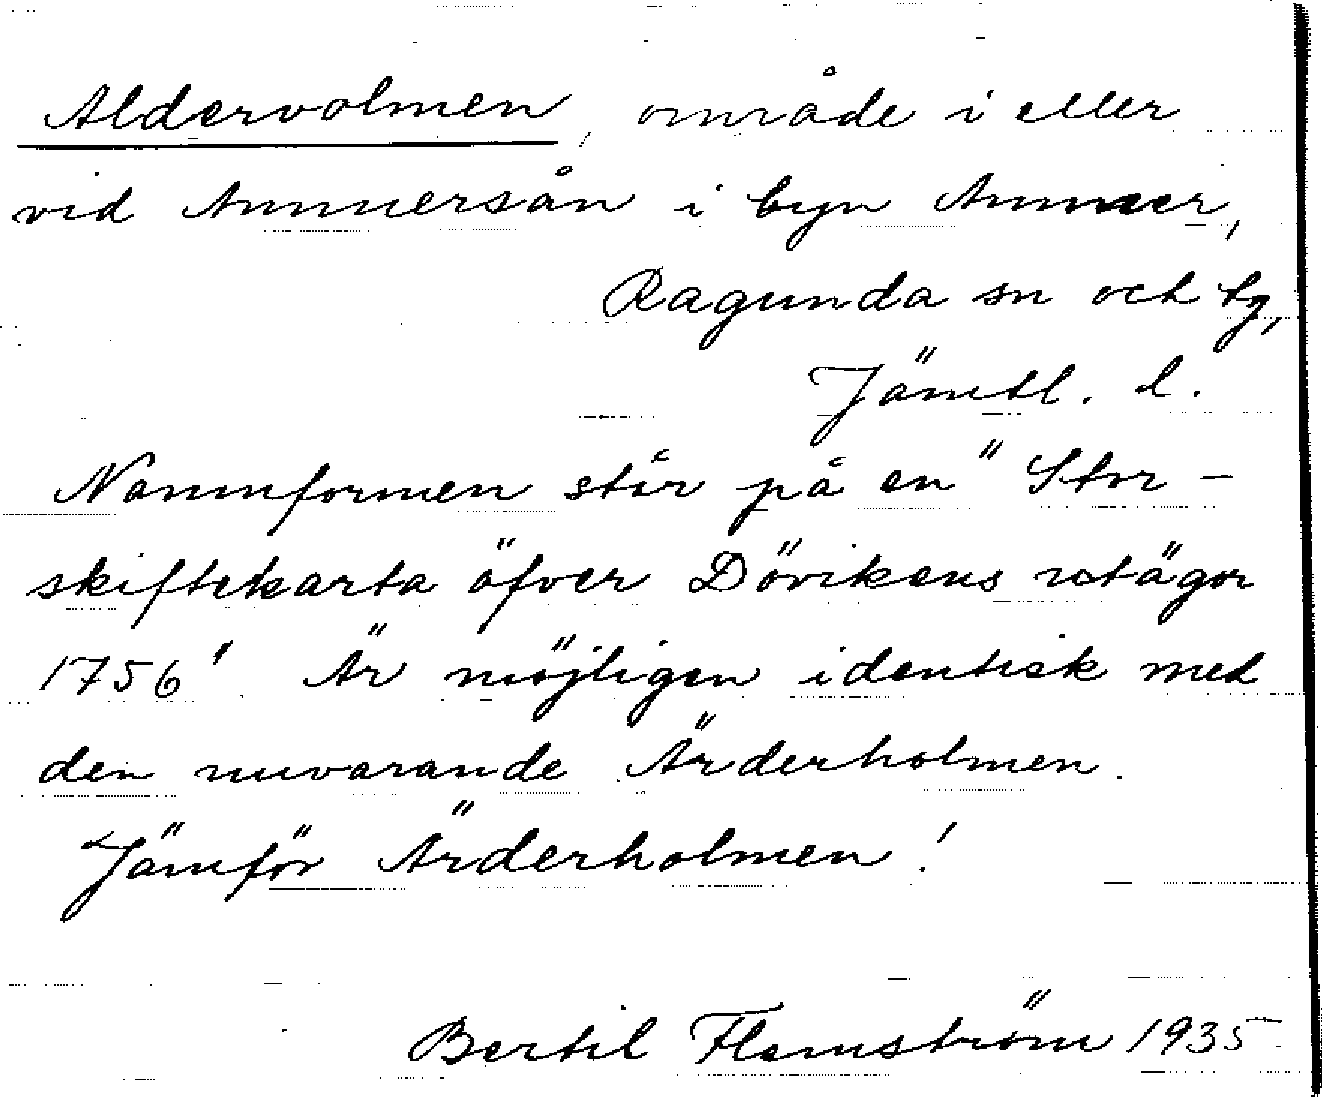 Aldervolmen, område i eller
vid Ammersån i byn Ammer,
Ragunda sn och tg,
Jämtl. l.
Namnformen står på en "Stor-
skifteskarta öfver Dövikens utägor
1756" Är möjligen identisk med
den nuvarande Ärderholmen.
Jämför Ärderholmen!
Bertil Flemström 1935